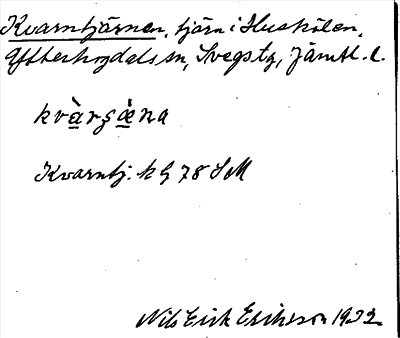 Kvarntjärnen, tjärn i Huskölen,
Ytterhogdals sn, Svegs tg, Jämtl. l.
kvàrʂæ̀na
Kvarntj. k G 78 SM
Nils Erik Eriksson 1932.